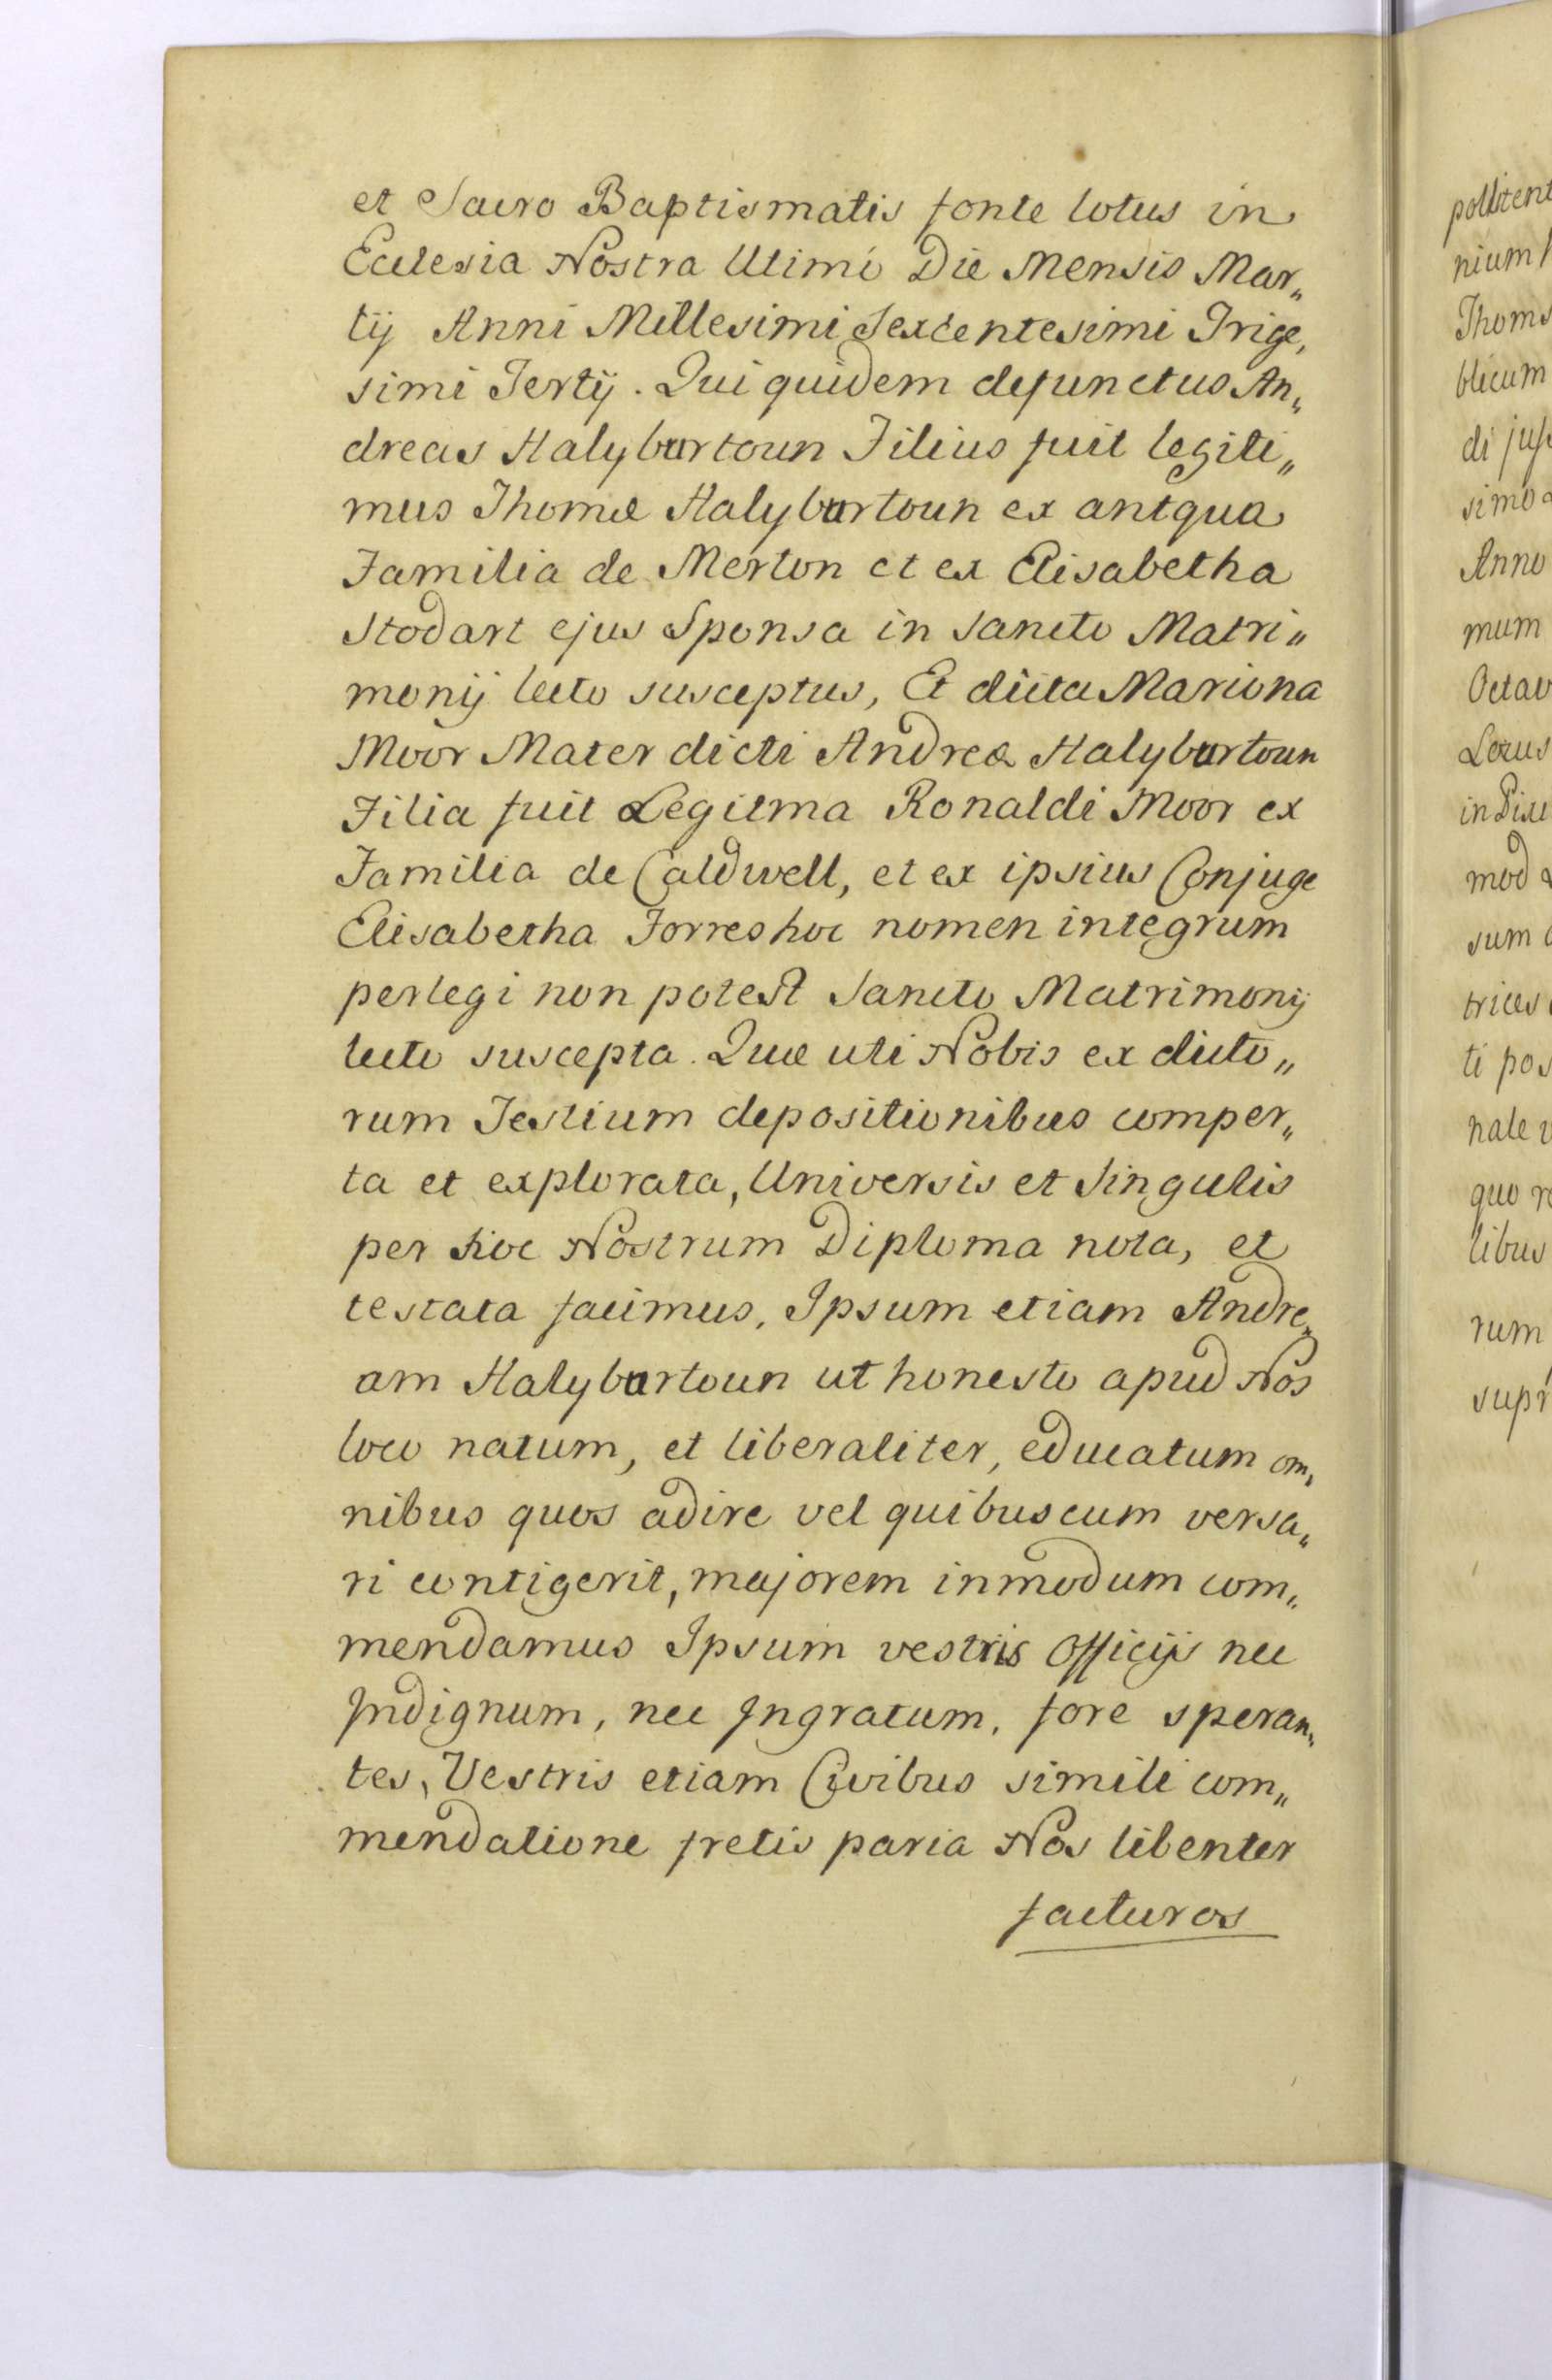 et Sacro Baptismatis fonte lotus in
Ecclesia Nostra Utimi Die Mensis Mar„
tij Anni Millesimi Sexcentesimi Trige„
simi Tertij. Qui quidem defunctus An„
dreas Halyburtoun Filius fuit legiti„
mus Thomæ Halyburtoun ex antqua
Familia de Merton et ex Elisabetha
Stodart ejus Sponsa in Sancto Matri„
monij lecto susceptus, Et dicta Mariona
Moor Mater dicti Andreæ Halyburtoun
Filia fuit Legitma Ronaldi Moor ex
Familia de Caldwell, et ex ipsius Conjuge
Elisabetha Forres hoc nomen integrum
perlegi non potest Sancto Matrimonij
lecto suscepta. Quæ uti Nobis ex dicto„
rum Testium depositionibus comper„
ta et explorata, Universis et Singulis
per hoc Nostrum Diploma nota, et
testata facimus, Ipsum etiam Andre„
am Halyburtoun ut honesto apud Nos
loco natum, et liberaliter, educatum om„
nibus quos adire vel quibuscum versa„
ri contigerit, majorem inmodum com„
mendamus Ipsum vestris Officijs nec
Indignum, nec Ingratum, fore speran„
tes, Vestris etiam Civibus simili com„
mendatione fretis paria Nos libenter
facturos
pollicent
nium
Thoms
blicum
di
simo
Anno
mum
Octav
Locus
in
mod
sum
trices
ti pos
nale
quo
libus
rum
supr